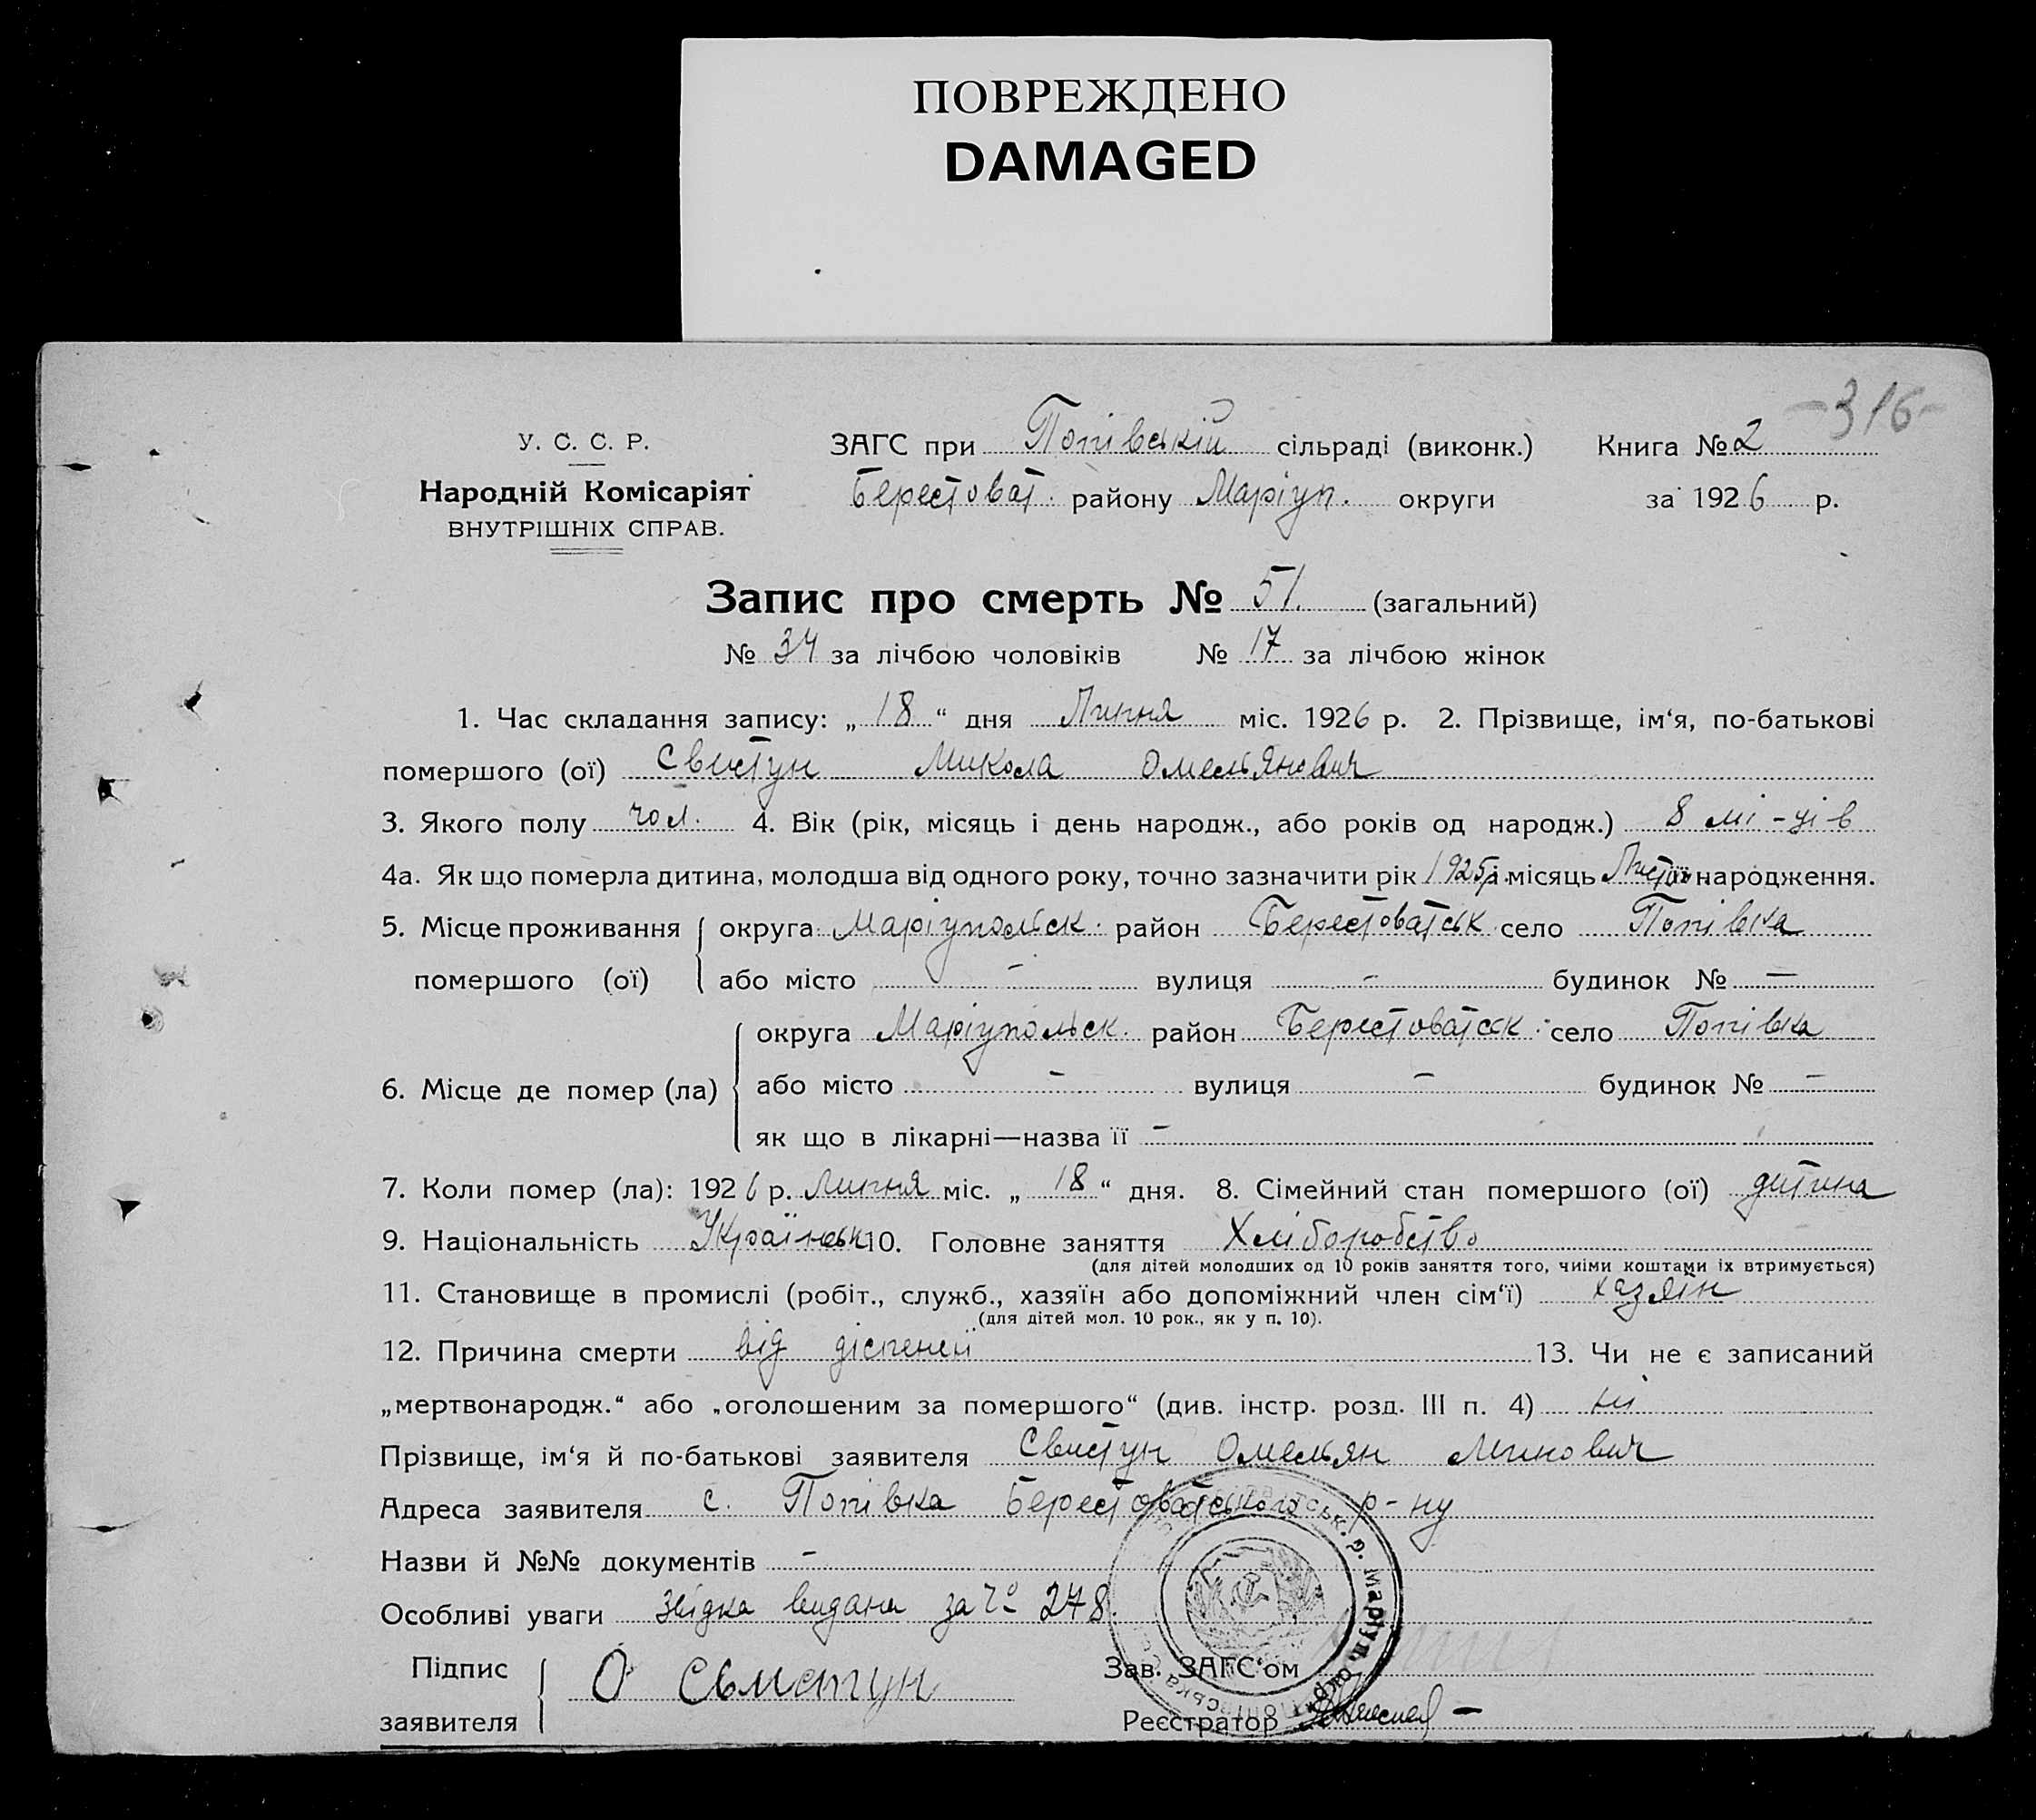 ПОВРЕЖДЕНО
DAMAGED
-316-
У. С. С. Р. ЗАГС при Попівській сільраді (виконк.) Книга № 2
Народній Комісаріят Берестоват. району Маріуп. округи за 1926 р.
ВНУТРІШНІХ СПРАВ.
Запис про смерть № 51. (загальний)
№ 34 за лічбою чоловіків № 17 за лічбою жінок
1. Час складання запису: „ 18 “ дня Липня міс. 1926 р. 2. Прізвище, ім‘я, по-батькові
помершого (ої) Свистун Микола Омельянович
3. Якого полу чол. 4. Вік (рік, місяць і день народж., або років од народж.) 8 мі-ців
4а. Як що померла дитина, молодша від одного року, точно зазначити рік 1925р і місяць народження.
5. Місце проживання округа Маріупольськ. район Берестоватськ село Попівка
помершого (ої) або місто - вулиця - будинок № —
округа Маріупольск. район Берестоватськ. село Попівка
6. Місце де помер (ла) або місто - вулиця - будинок № -
як що в лікарні—назва її -
7. Коли помер (ла): 1926 р. Липня міс. „ 18 “ дня. 8. Сімейний стан помершого (ої) дитина
9. Національність Українськ 10. Головне заняття Хліборобство
(для дітей молодших од 10 років заняття того, чиїми коштами їх втримується)
11. Становище в промислі (робіт., служб., хазяїн або допоміжний член сім‘ї) хазяїн
(для дітей мол. 10 рок., як у п. 10).
12. Причина смерти від 13. Чи не є записаний
„мертвонародж.“ або „оголошеним за помершого“ (див. інстр. розд. III п. 4) ні
Прізвище, ім‘я й по-батькові заявителя Свистун Омельян Минович
Адреса заявителя с. Попівка Берестоватського р-ну
Назви й №№ документів -
Особливі уваги звідка видана за № 278.
Підпис О Свистун Зав. ЗАГС‘ом
заявителя Реєстратор